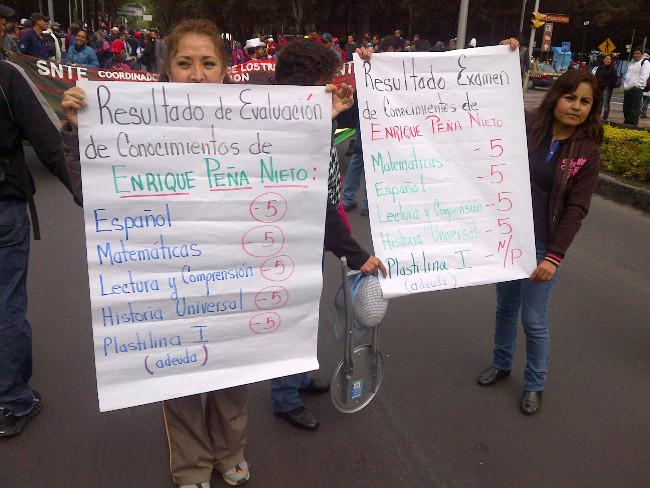 SNTE COORDINADO
Resultado de Evaluación
de Conocimientos de
ENRIQUE PEÑA NIETO:
Español -5
Matemáticas -5
Lectura y Comprensión -5
Historia Universal -5
Plastilina I -5
(adeuda)
Resultado Examen
de Conocimientos de
ENRIQUE PEÑA NIETO
Matemáticas -5
Español -5
Lectura y Comprensión -5
Historia Universal -5
Plastilina I - N/P
(adeuda)